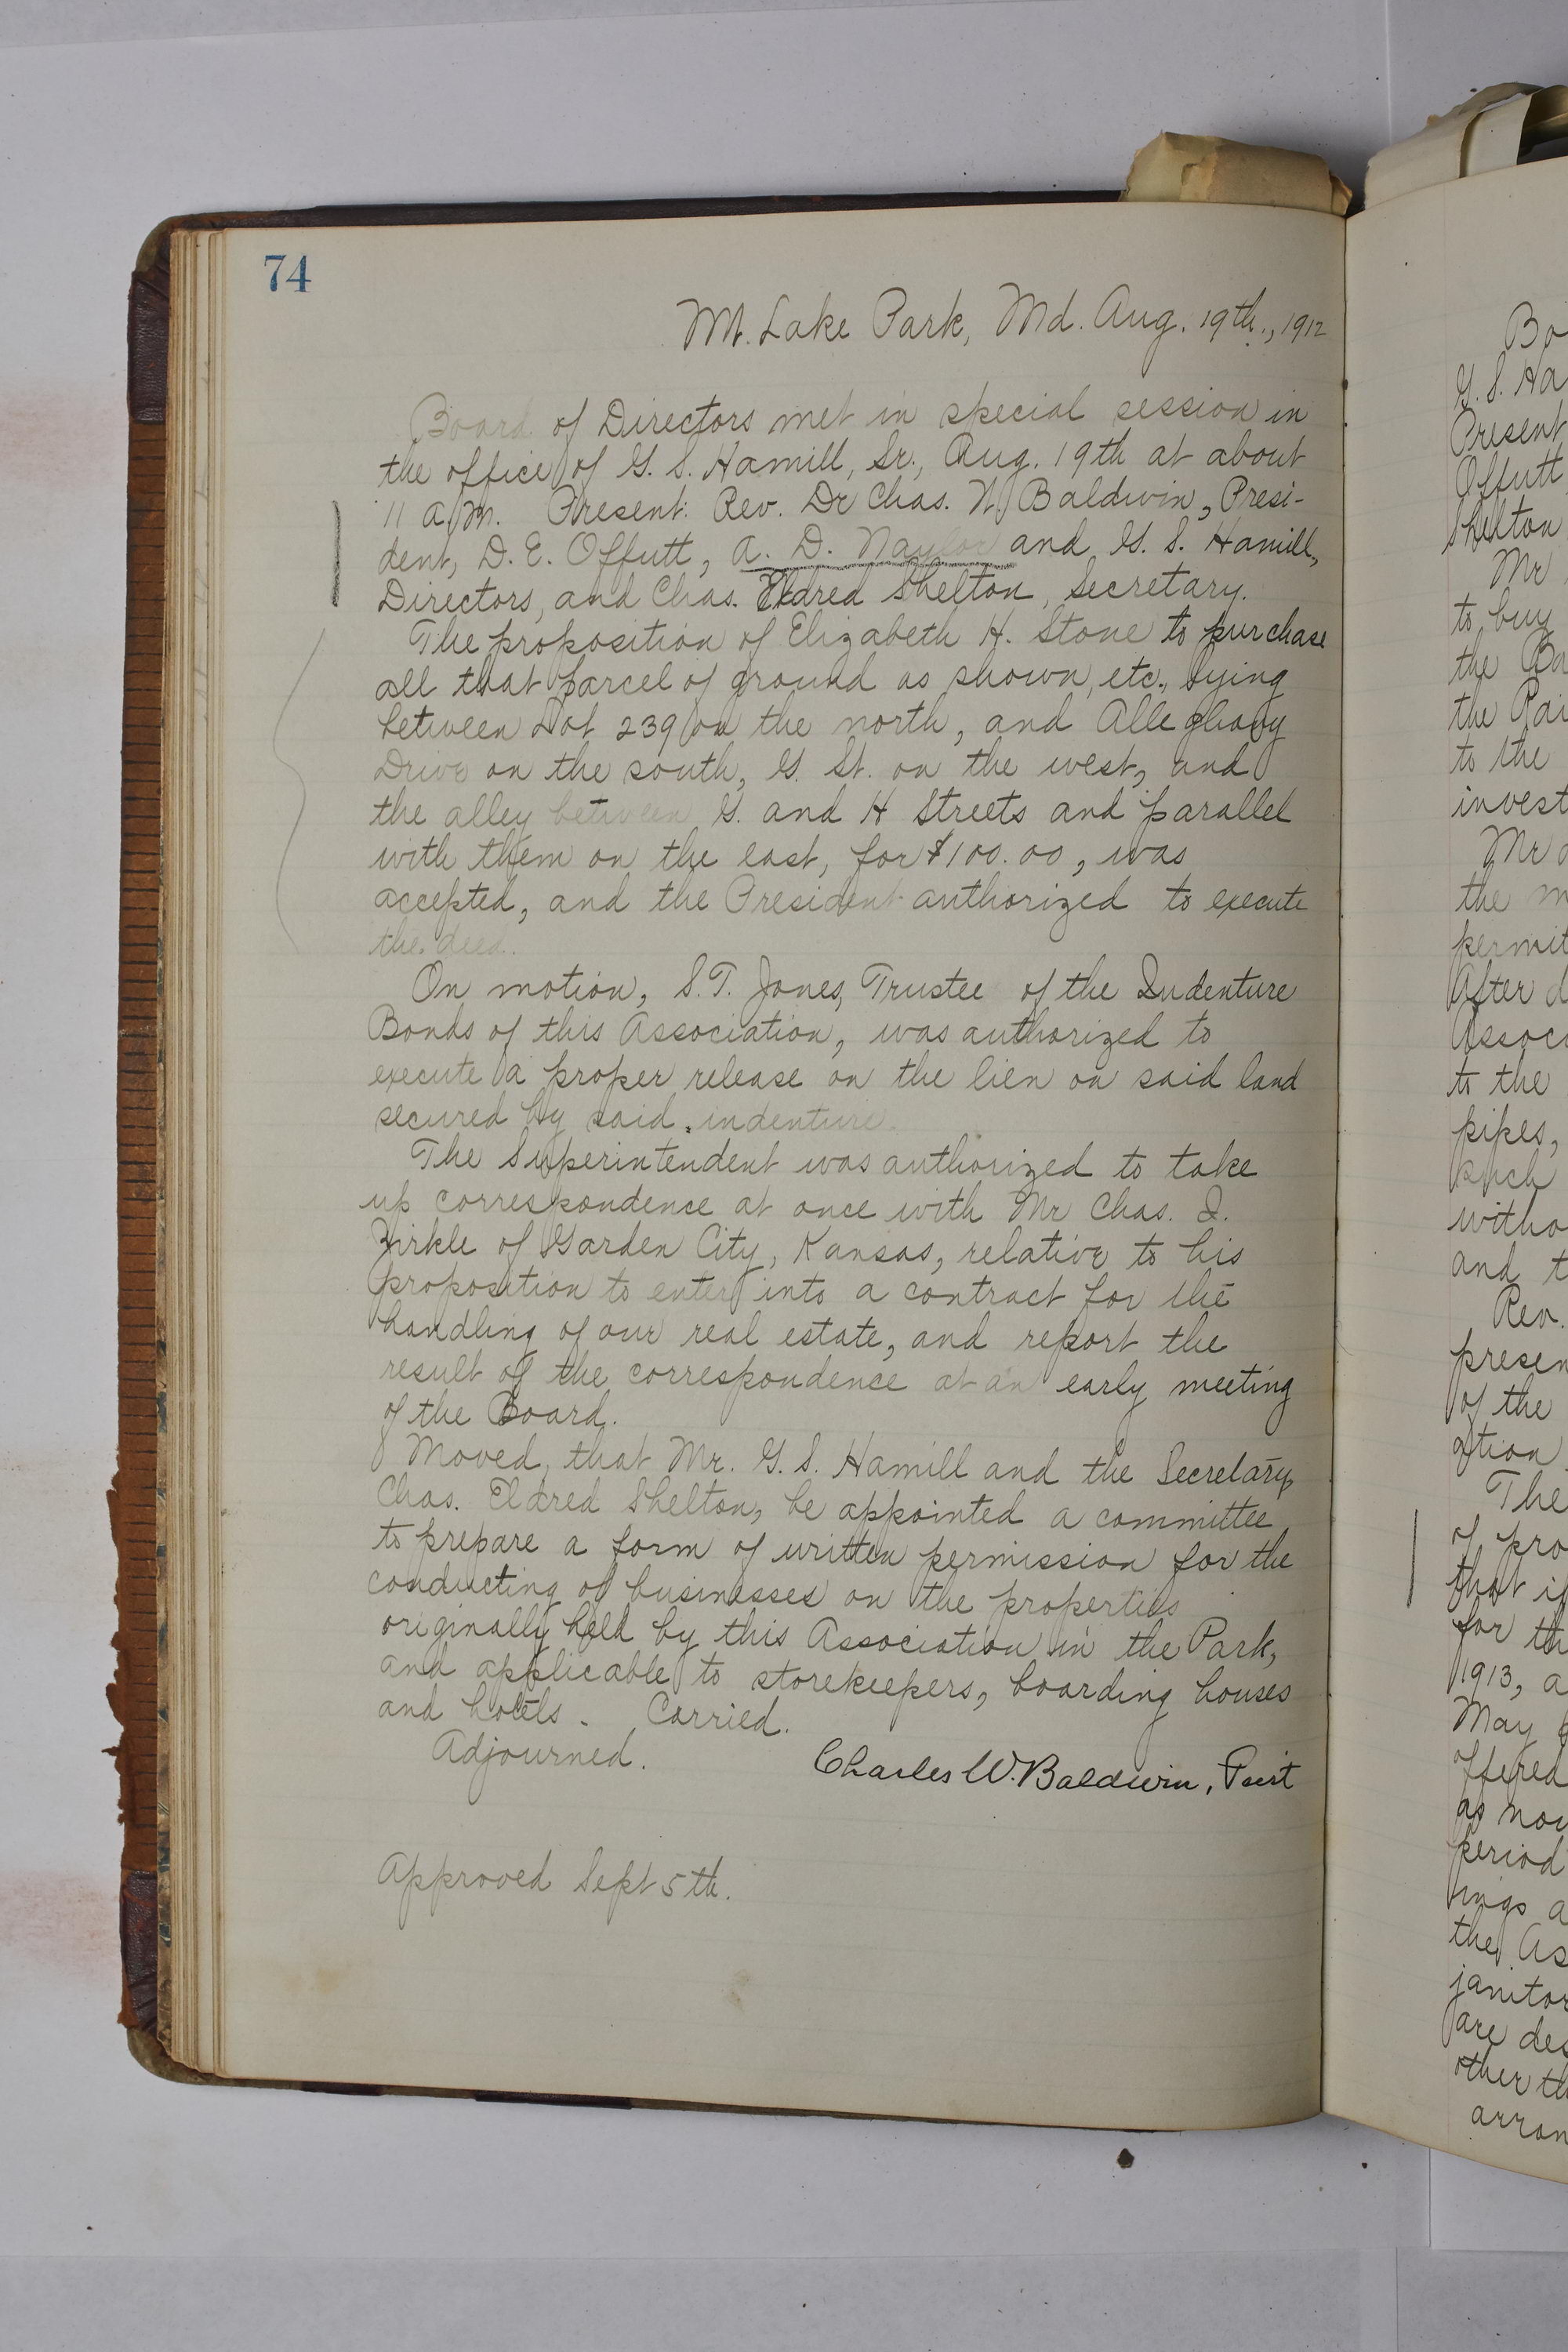 74
Mt. Lake Park, Md. Aug. 19th., 1912
Board of Directors met in special session in
the office of G. S. Hamill, Sr., Aug. 19th at about
11 a.m. Present: Rev. Dr Chas. W. Baldwin, Presi-
dent, D. E. Offutt, A. D. Naylor and G. S. Hamill,
Directors, and Chas. Eldred Shelton, Secretary.
The proposition of Elizabeth H. Stone to purchase
all that parcel of ground as shown, etc., lying
between Lot 239 on the north, and Alleghany
Drive on the south, G. St. on the west, and
the alley between G. and H Streets and parallel
with them on the east, for $100.00, was
accepted, and the President authorized to execute
the deed.
On motion, S. T. Jones, Trustee of the Indenture
Bonds of this Association, was authorized to
execute a proper release on the lien on said land
secured by said indenture.
The Superintendent was authorized to take
up correspondence at once with Mr Chas. I.
Zirkle of Garden City, Kansas, relative to his
proposition to enter into a contract for the
handling of our real estate, and report the
result of the correspondence at an early meeting
of the Board.
Moved, that Mr. G. S. Hamill and the Secretary,
Chas. Eldred Shelton, be appointed a committee
to prepare a form of written permission for the
conducting of businesses on the properties
originally held by this Association in the Park,
and applicable to storekeepers, boarding houses
and hotels. Carried.
Adjourned.
Charles W. Baldwin, Prest
Approved Sept 5th.
Bo
G. S. Ha
Present
Offutt
Shelton
Mr
to buy
the Ba
the Pai
to the
invest
Mr
the m
permit
After d
Associ
to the
pipes,
such
witho
and t
Rev.
presen
of the
ation
The
of pro
that if
for th
1913, a
May
offered
as now
period
ings a
the As
janitor
are des
other th
arran